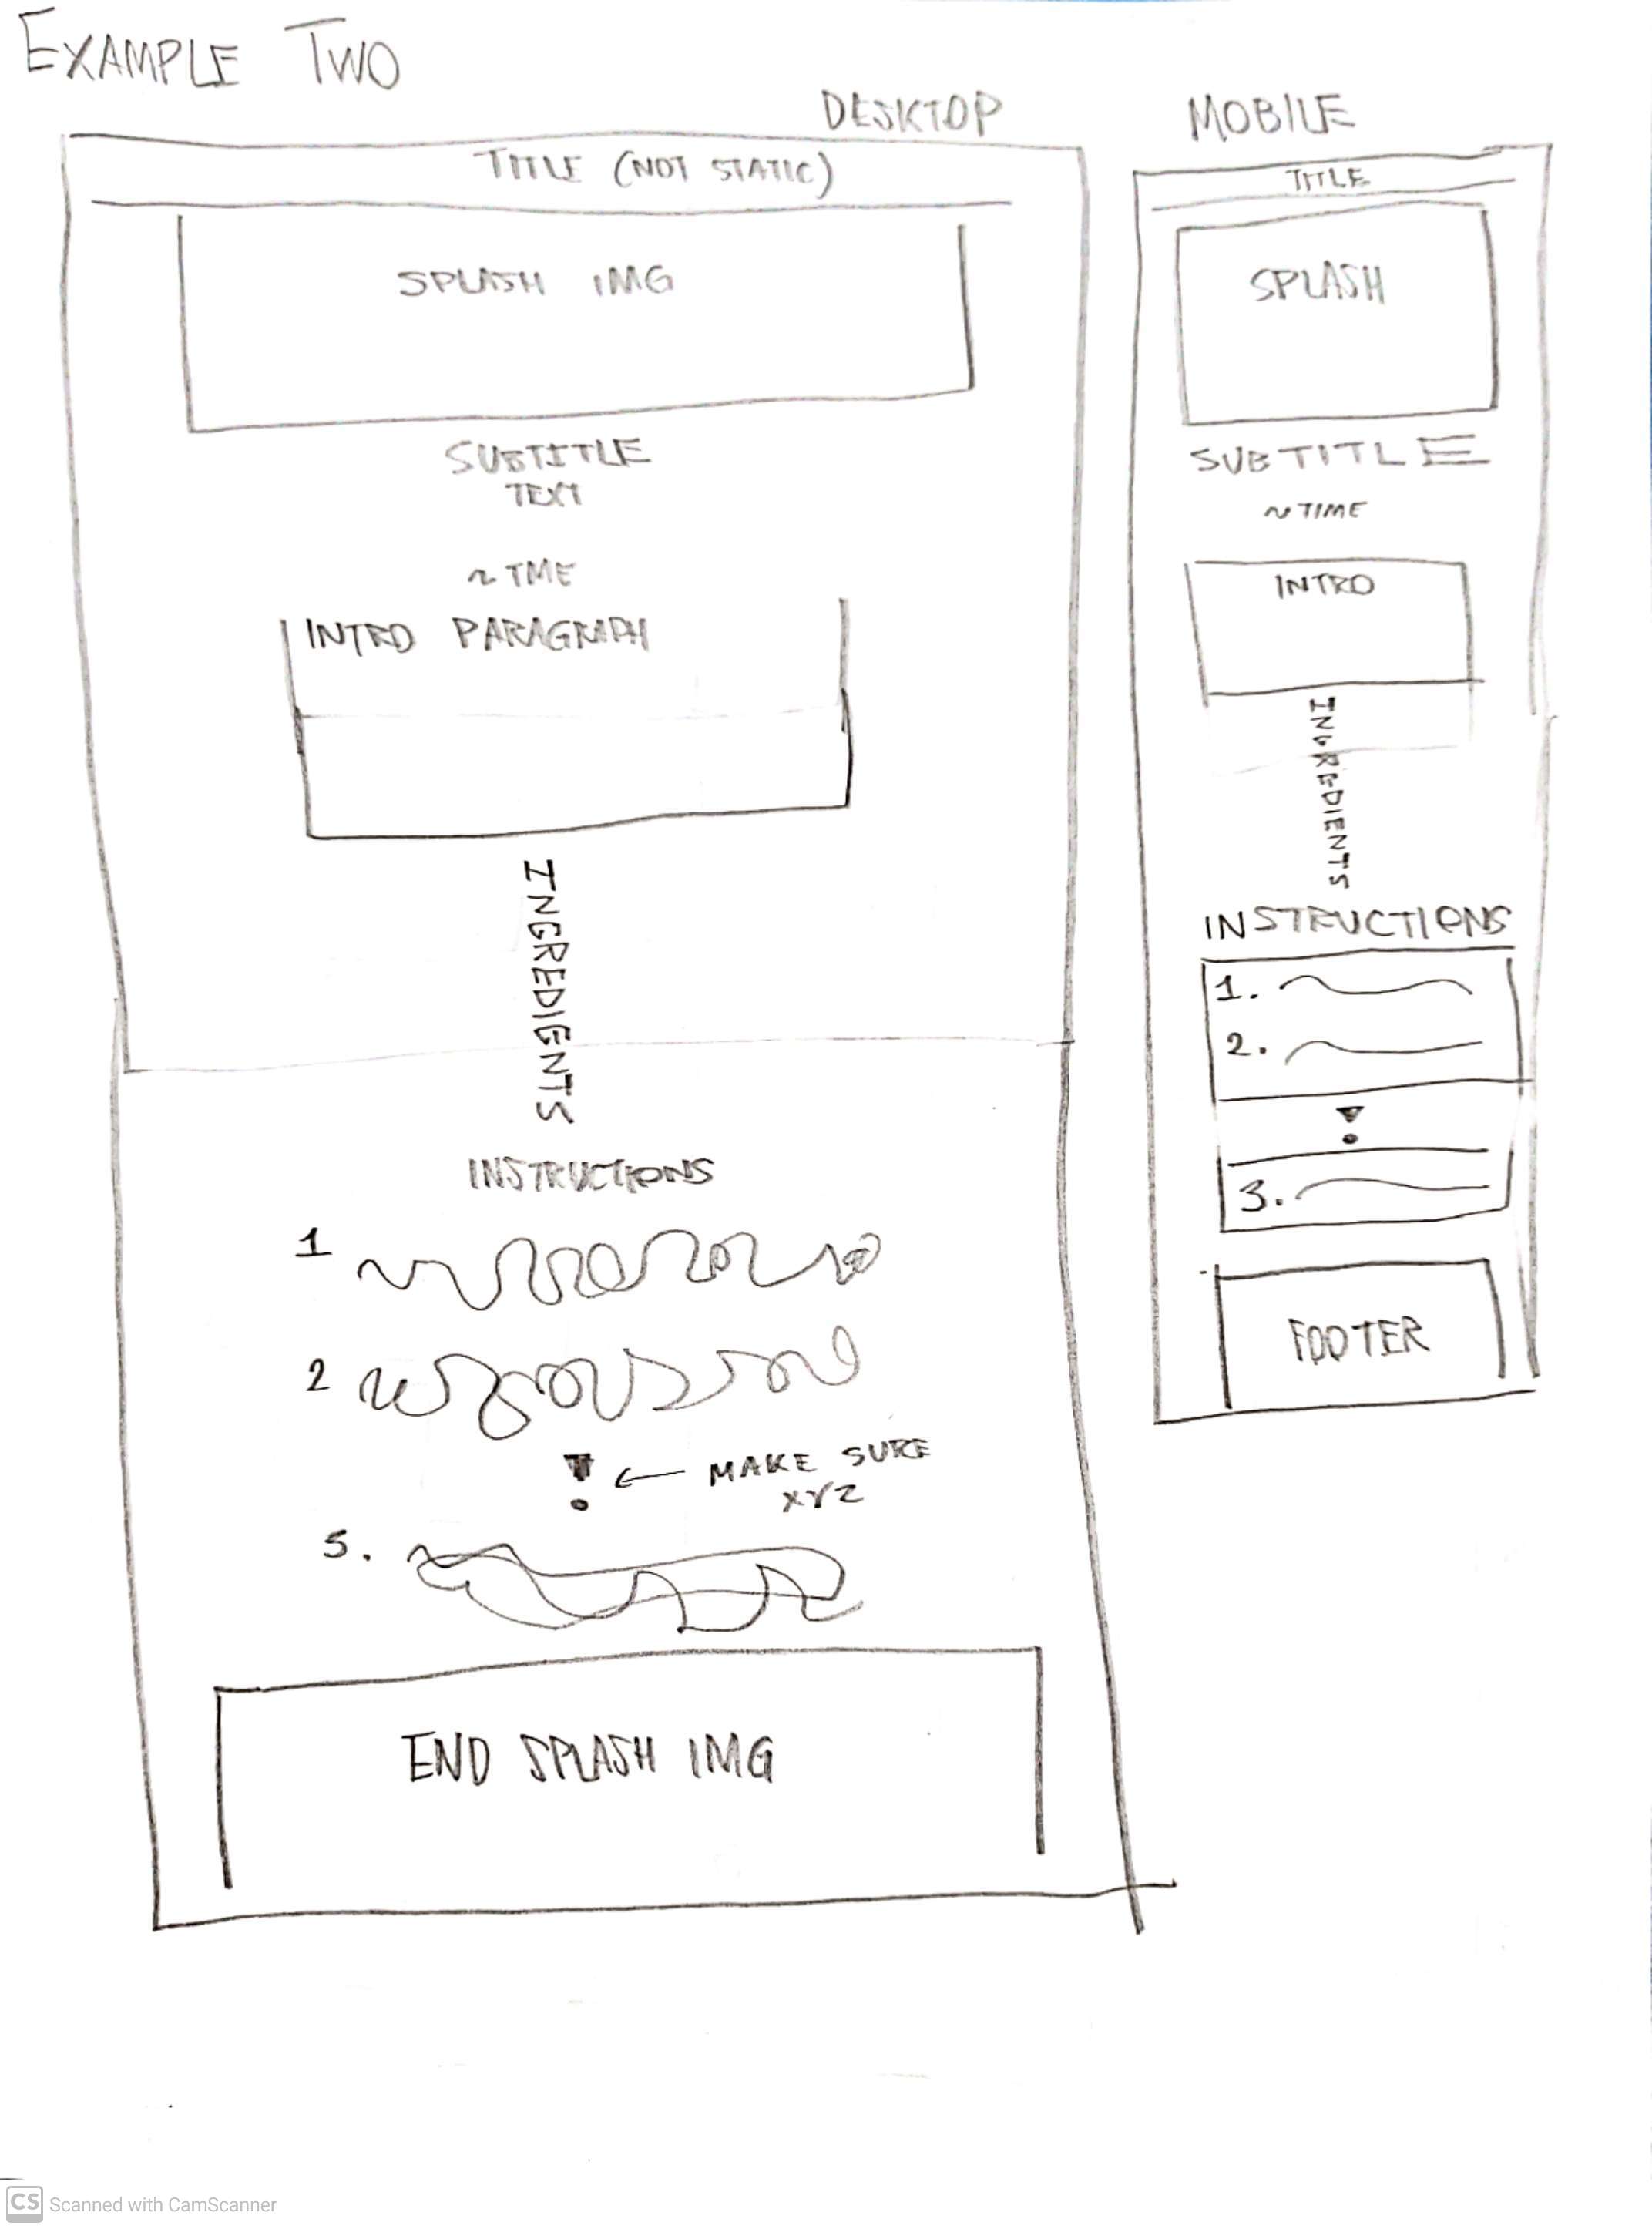 EXAMPLE TWO
DESKTOP
TITLE (NOT STATIC)
SPLASH IMG
SUBTITLE
TEXT
~ TME
INTRO PARAGRAPH
INGREDIENTS
INSTRUCTIONS
1
2
! ← MAKE SURE
XYZ
5.
END SPLASH IMG
MOBILE
TITLE
SPLASH
SUBTITLE
~ TIME
INTRO
INGREDIENTS
INSTRUCTIONS
1.
2.
!
3.
FOOTER
CS Scanned with CamScanner